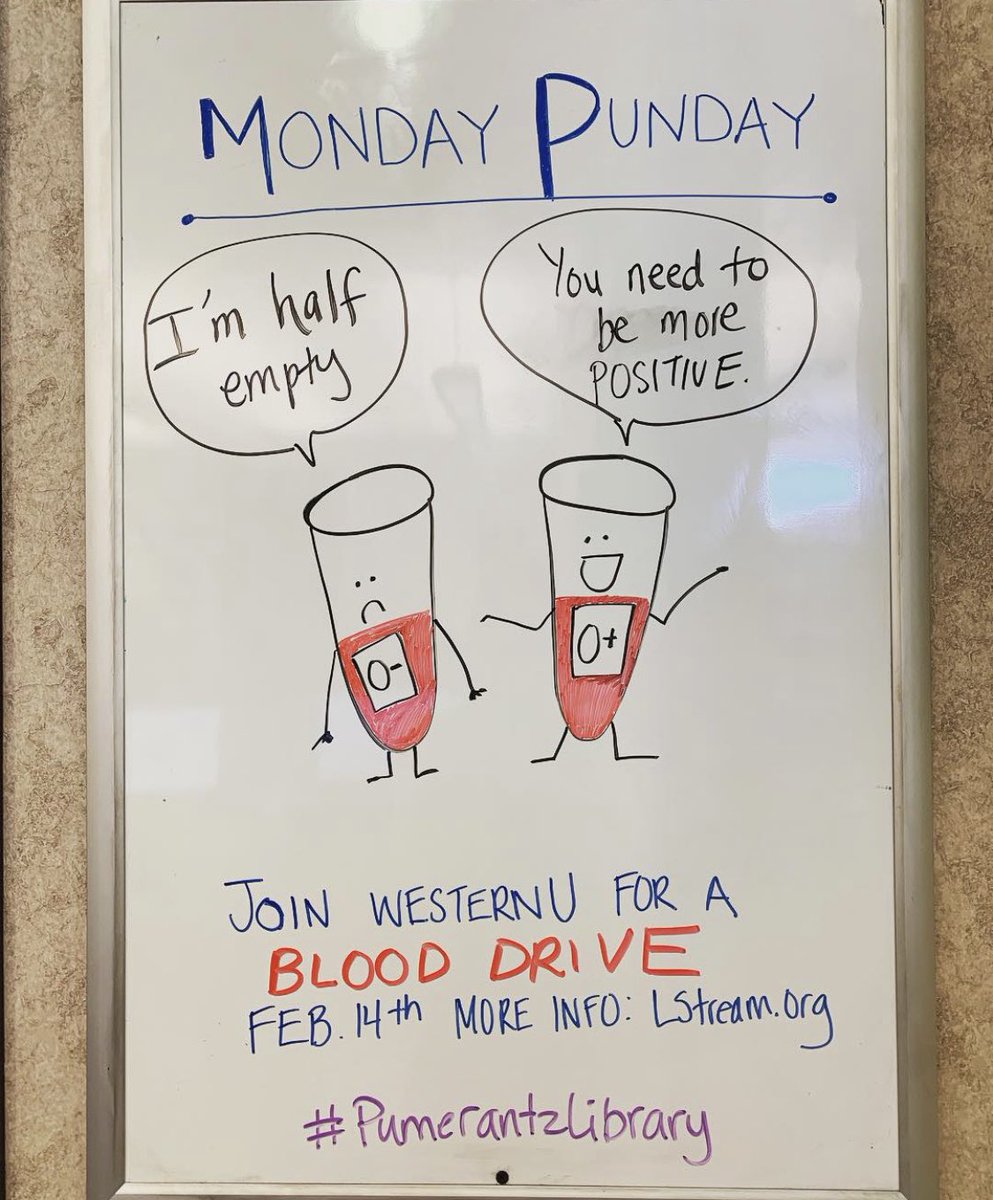 MONDAY PUNDAY
I'm half
empty
You need to
be more
POSITIVE.
O-
O+
JOIN WESTERNU FOR A
BLOOD DRIVE
FEB. 14th MORE INFO: LStream.org
#PumerantzLibrary